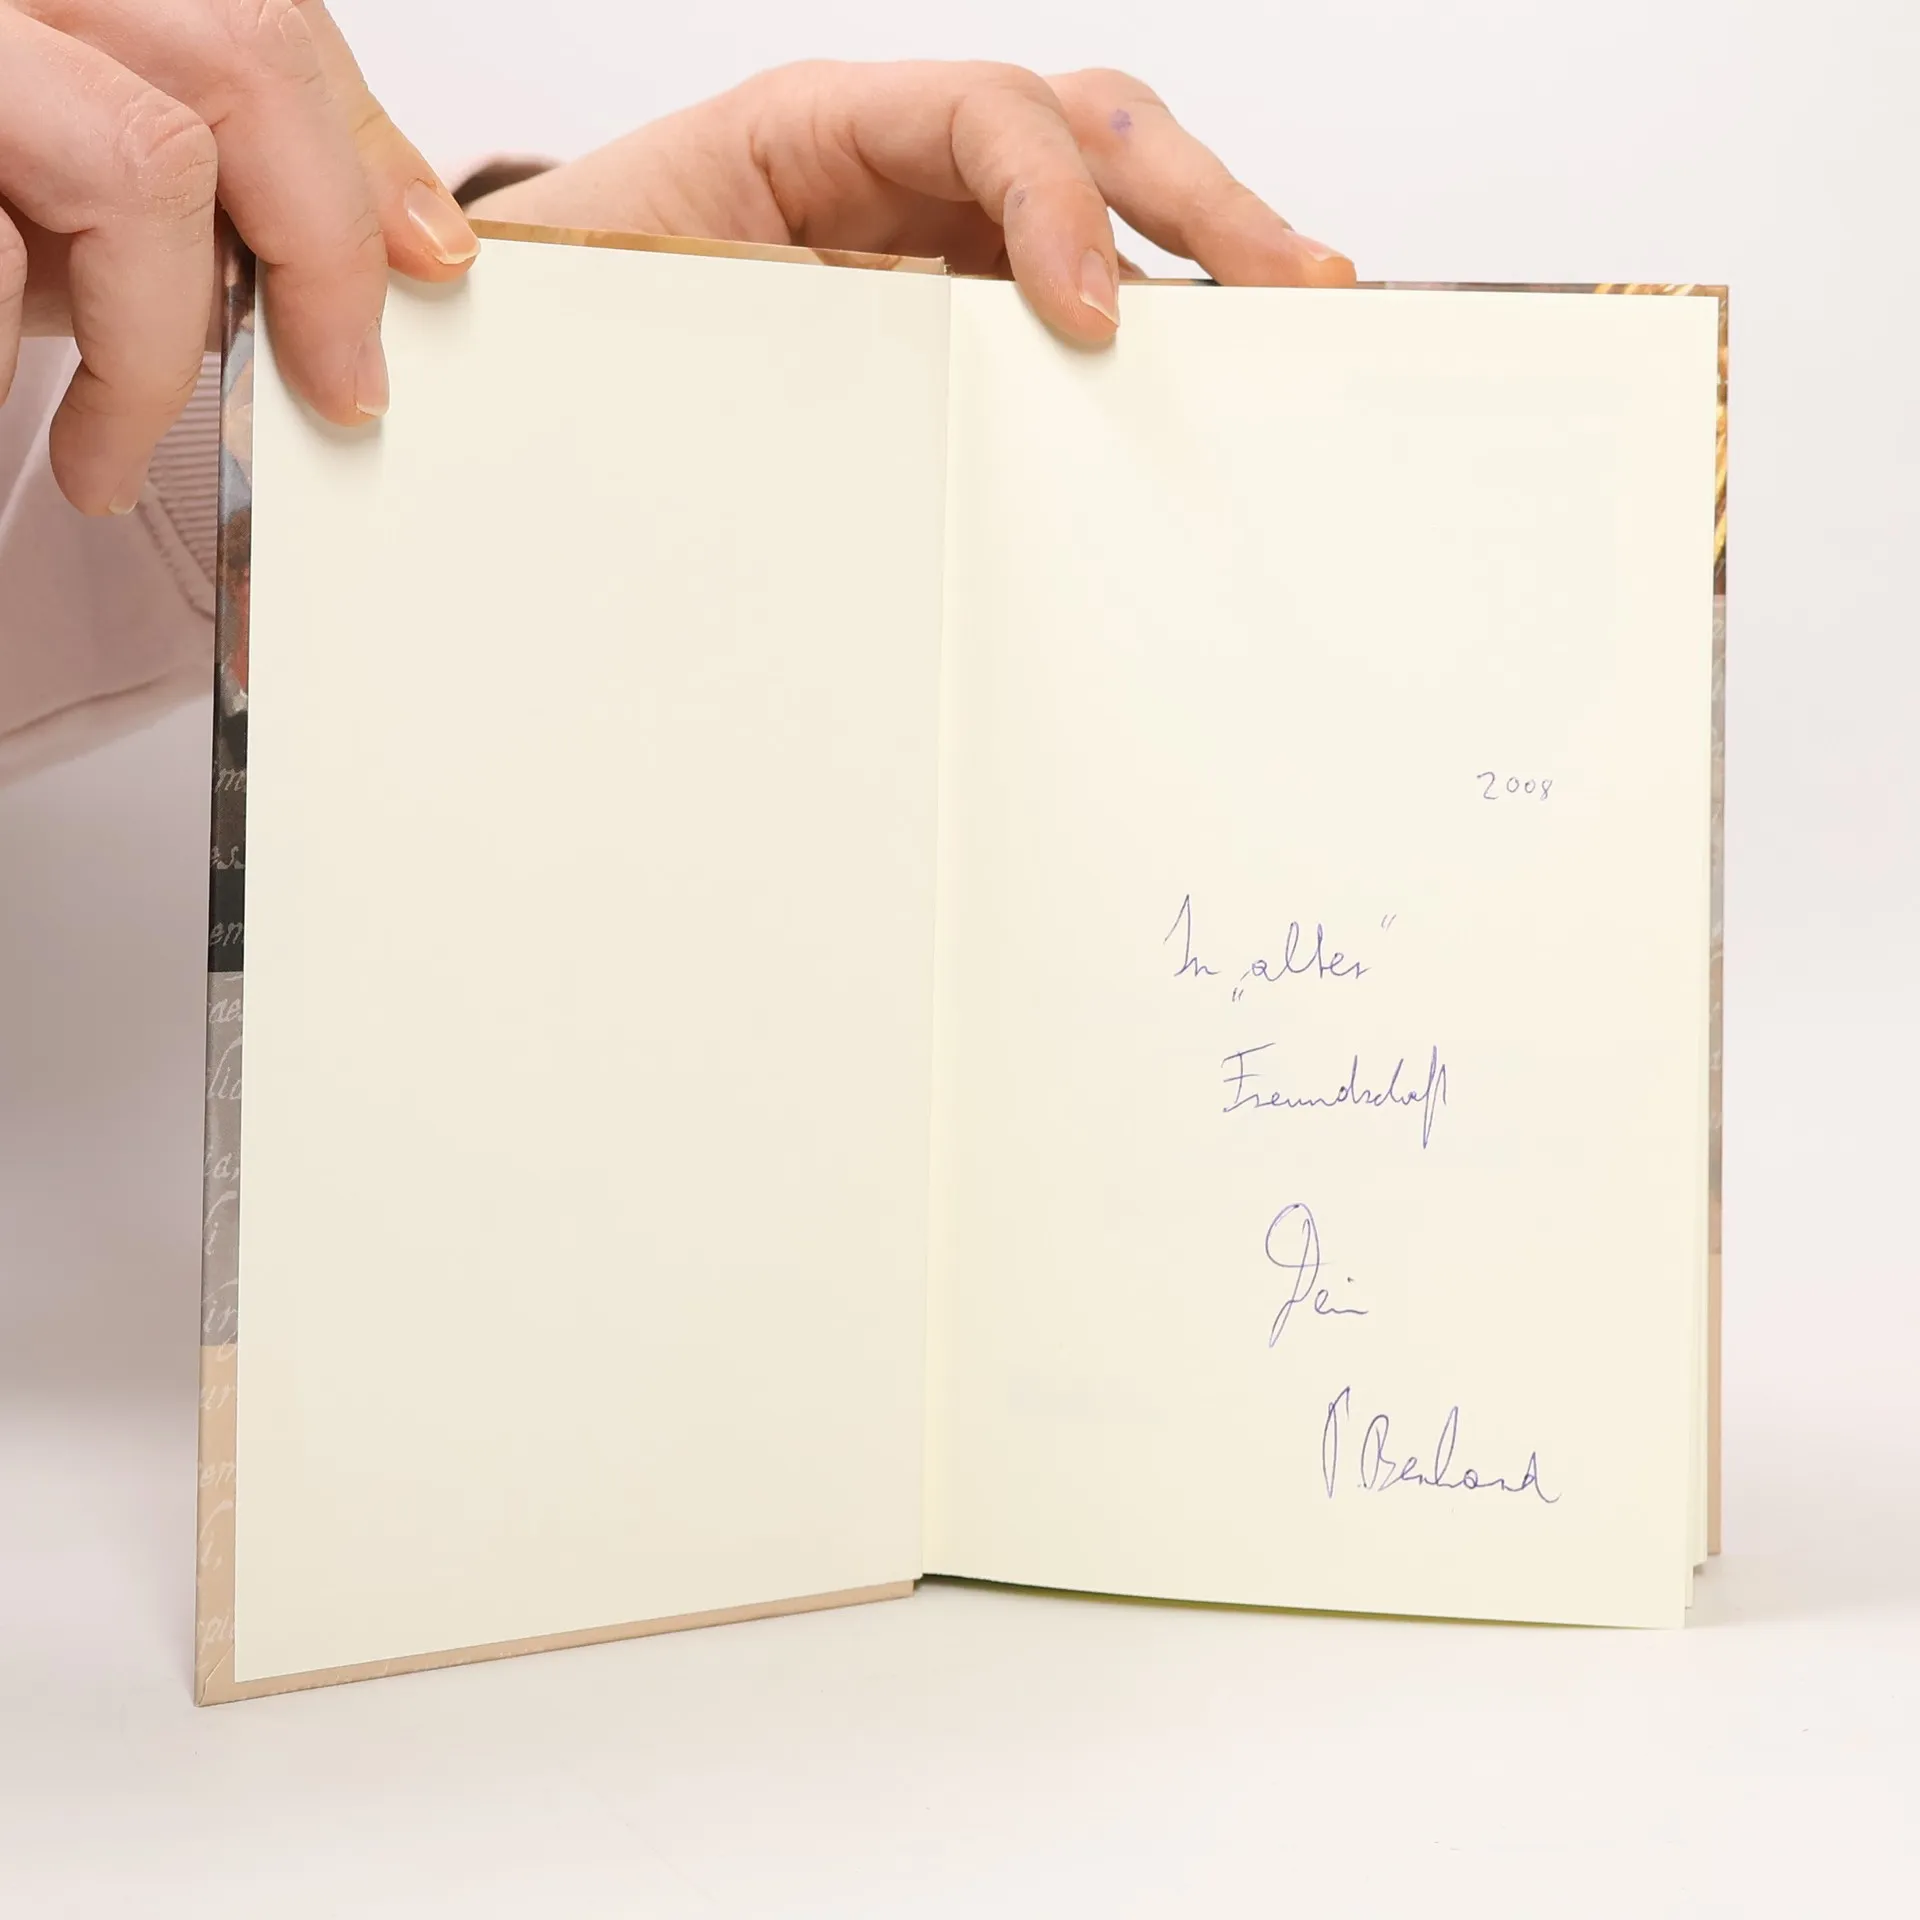 2008
In „alter“
Freundschaft
Dein
P. Bernhard